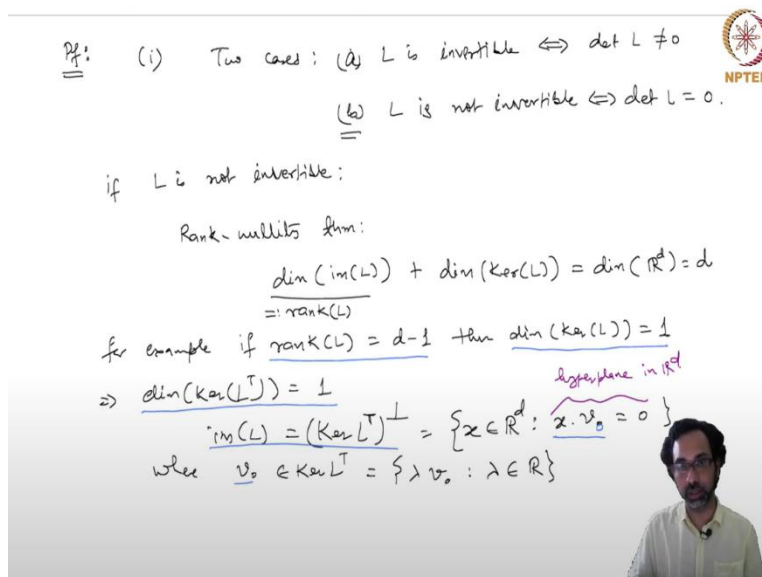 Pf: (i) Two cases : (a) L is invertible ⇔ det L ≠ 0
NPTEL
(b) L is not invertible ⇔ det L = 0.
if L is not invertible:
Rank-nullity thm:
dim (im(L)) + dim (Ker(L)) = dim (ℝ^d) = d
=: rank(L)
for example if rank(L) = d-1 then dim (Ker(L)) = 1
⇒ dim(Ker(L^T)) = 1
hyperplane in ℝ^d
im(L) = (Ker L^T)^⊥ = {x ∈ ℝ^d : x . v_0 = 0}
where v_0 ∈ Ker L^T = {λ v_0 : λ ∈ ℝ}